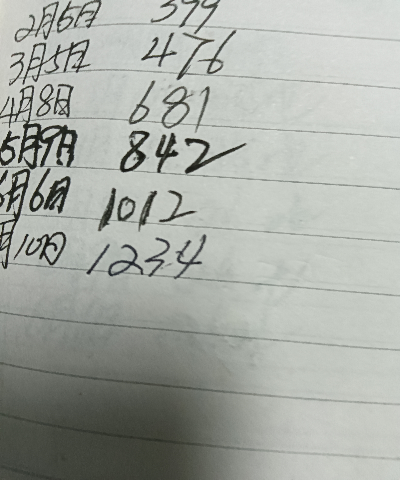 2月6日 399
3月5日 476
4月8日 681
5月9日 842
6月6日 1012
月10日 1234